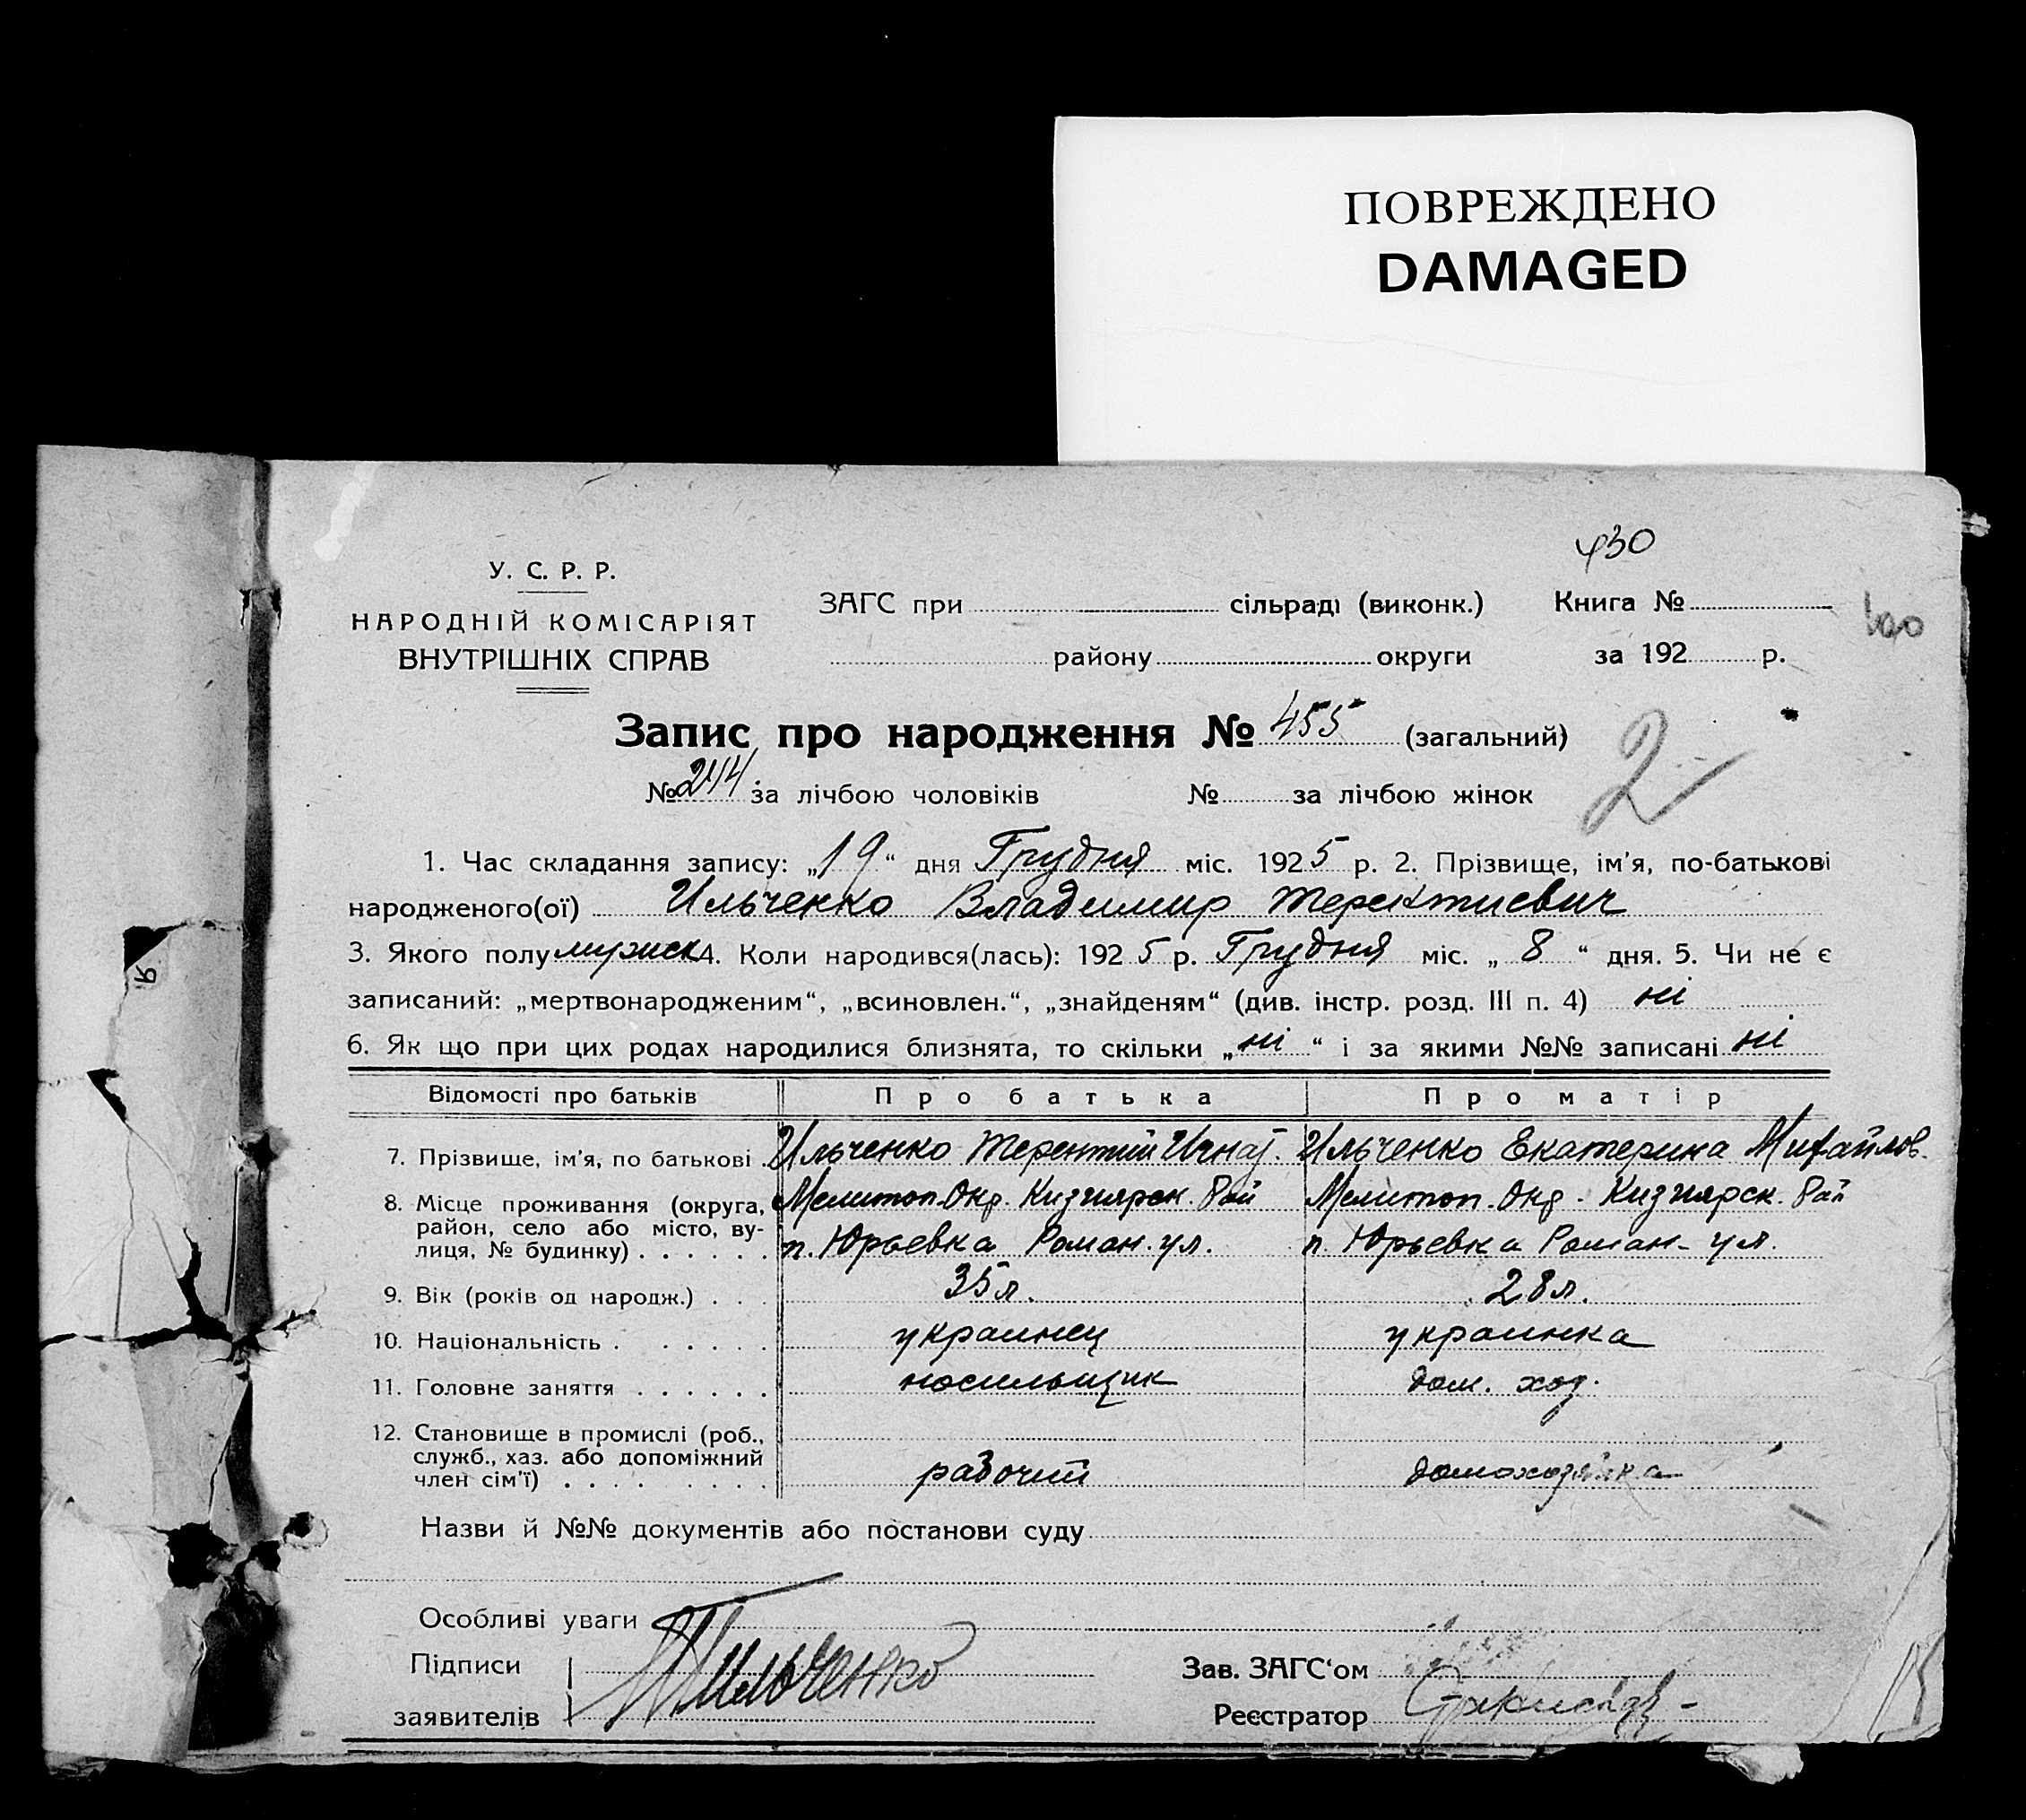 ПОВРЕЖДЕНО
DAMAGED
430
У. С. Р. Р.
НАРОДНІЙ КОМІСАРІЯТ
ВНУТРІШНІХ СПРАВ
ЗАГС при сільраді (виконк.) Книга №
району округи за 192 р.
Запис про народження № 455 (загальний)
2
№ 244 за лічбою чоловіків № за лічбою жінок
1. Час складання запису: „19“ дня Грудня міс. 1925 р. 2. Прізвище, ім'я, по-батькові
народженого(ої) Ильченко Владимир Терентиевич
3. Якого полу мужск 4. Коли народився(лась): 1925 р. Грудня міс. „8“ дня. 5. Чи не є
записаний: „мертвонародженим“, „всиновлен.“, „знайденям“ (див. інстр. розд. III п. 4) ні
6. Як що при цих родах народилися близнята, то скільки „ні“ і за якими №№ записані ні
Відомості про батьків Про батька Про матір
7. Прізвище, ім'я, по батькові Ильченко Терентий Игнат. Ильченко Екатерина Михайлов.
8. Місце проживання (округа, Мелитоп. Окр. Кизиярск. Рай Мелитоп. Окр. Кизиярск. Рай
район, село або місто, ву-
лиця, № будинку) п. Юрьевка Роман. ул. п. Юрьевка Роман. ул.
9. Вік (років од народж.) 35 л. 28 л.
10. Національність украинец украинка
11. Головне заняття носильщик дом. хоз.
12. Становище в промислі (роб.,
служб., хаз. або допоміжний
член сім'ї) рабочий домохозяйка
Назви й №№ документів або постанови суду
Особливі уваги
Підписи Зав. ЗАГС'ом
Тильченко
заявителів Реєстратор